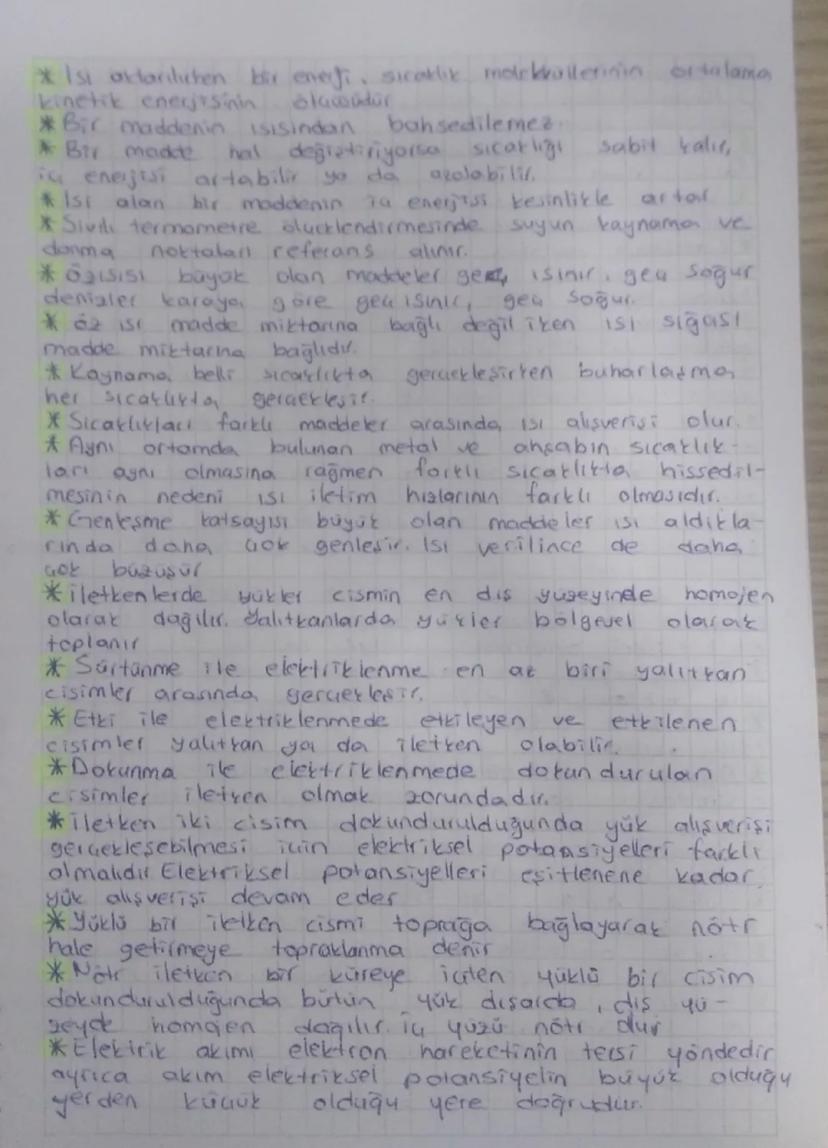 * Isı aktarılırken bir enerji, sıcaklık moleküllerinin ortalama
kinetik enerjisinin ölçüsüdür
* Bir maddenin ısısından bahsedilemez.
* Bir madde hal değiştiriyorsa sıcaklığı sabit kalır,
iç enerjisi artabilir ya da azalabilir.
* Isı alan bir maddenin iç enerjisi kesinlikle artar
* Sıvılı termometre ölçeklendirmesinde suyun kaynama ve
donma noktaları referans alınır.
* özısısı büyük olan maddeler geç ısınır, geç soğur
denizler karaya göre geç ısınır, geç soğur.
* öz ısı madde miktarına bağlı değil iken ısı sığası
madde miktarına bağlıdır.
* Kaynama belli sıcaklıkta gerçekleşirken buharlaşma
her sıcaklıkta gerçekleşir.
* Sıcaklıkları farklı maddeler arasında ısı alışverişi olur.
* Aynı ortamda bulunan metal ve ahşabın sıcaklık-
ları aynı olmasına rağmen farklı sıcaklıkta hissedil-
mesinin nedeni ısı iletim hızlarının farklı olmasıdır.
* Genleşme katsayısı büyük olan maddeler ısı aldıkla-
rında daha çok genleşir. Isı verilince de daha
çok büzüşür
* iletkenlerde yükler cismin en dış yüzeyinde homojen
olarak dağılır. Yalıtkanlarda yükler bölgesel olarak
toplanır
* Sürtünme ile elektriklenme en az biri yalıtkan
cisimler arasında gerçekleşir.
* Etki ile elektriklenmede etkileyen ve etkilenen
cisimler yalıtkan ya da iletken olabilir.
* Dokunma ile elektriklenmede dokundurulan
cisimler iletken olmak zorundadır.
* iletken iki cisim dokundurulduğunda yük alışverişi
gerçekleşebilmesi için elektriksel potansiyelleri farklı
olmalıdır Elektriksel potansiyelleri eşitlenene kadar
yük alışverişi devam eder
* Yüklü bir iletken cismi toprağa bağlayarak nötr
hale getirmeye topraklanma denir
* Nötr iletken bir küreye içten yüklü bir cisim
dokundurulduğunda bütün yük dışarda, dış yü-
zeyde homojen dağılır. iç yüzü nötr dür
* Elektirik akımı elektron hareketinin tersi yöndedir
ayrıca akım elektriksel potansiyelin büyük olduğu
yerden küçük olduğu yere doğrudur.